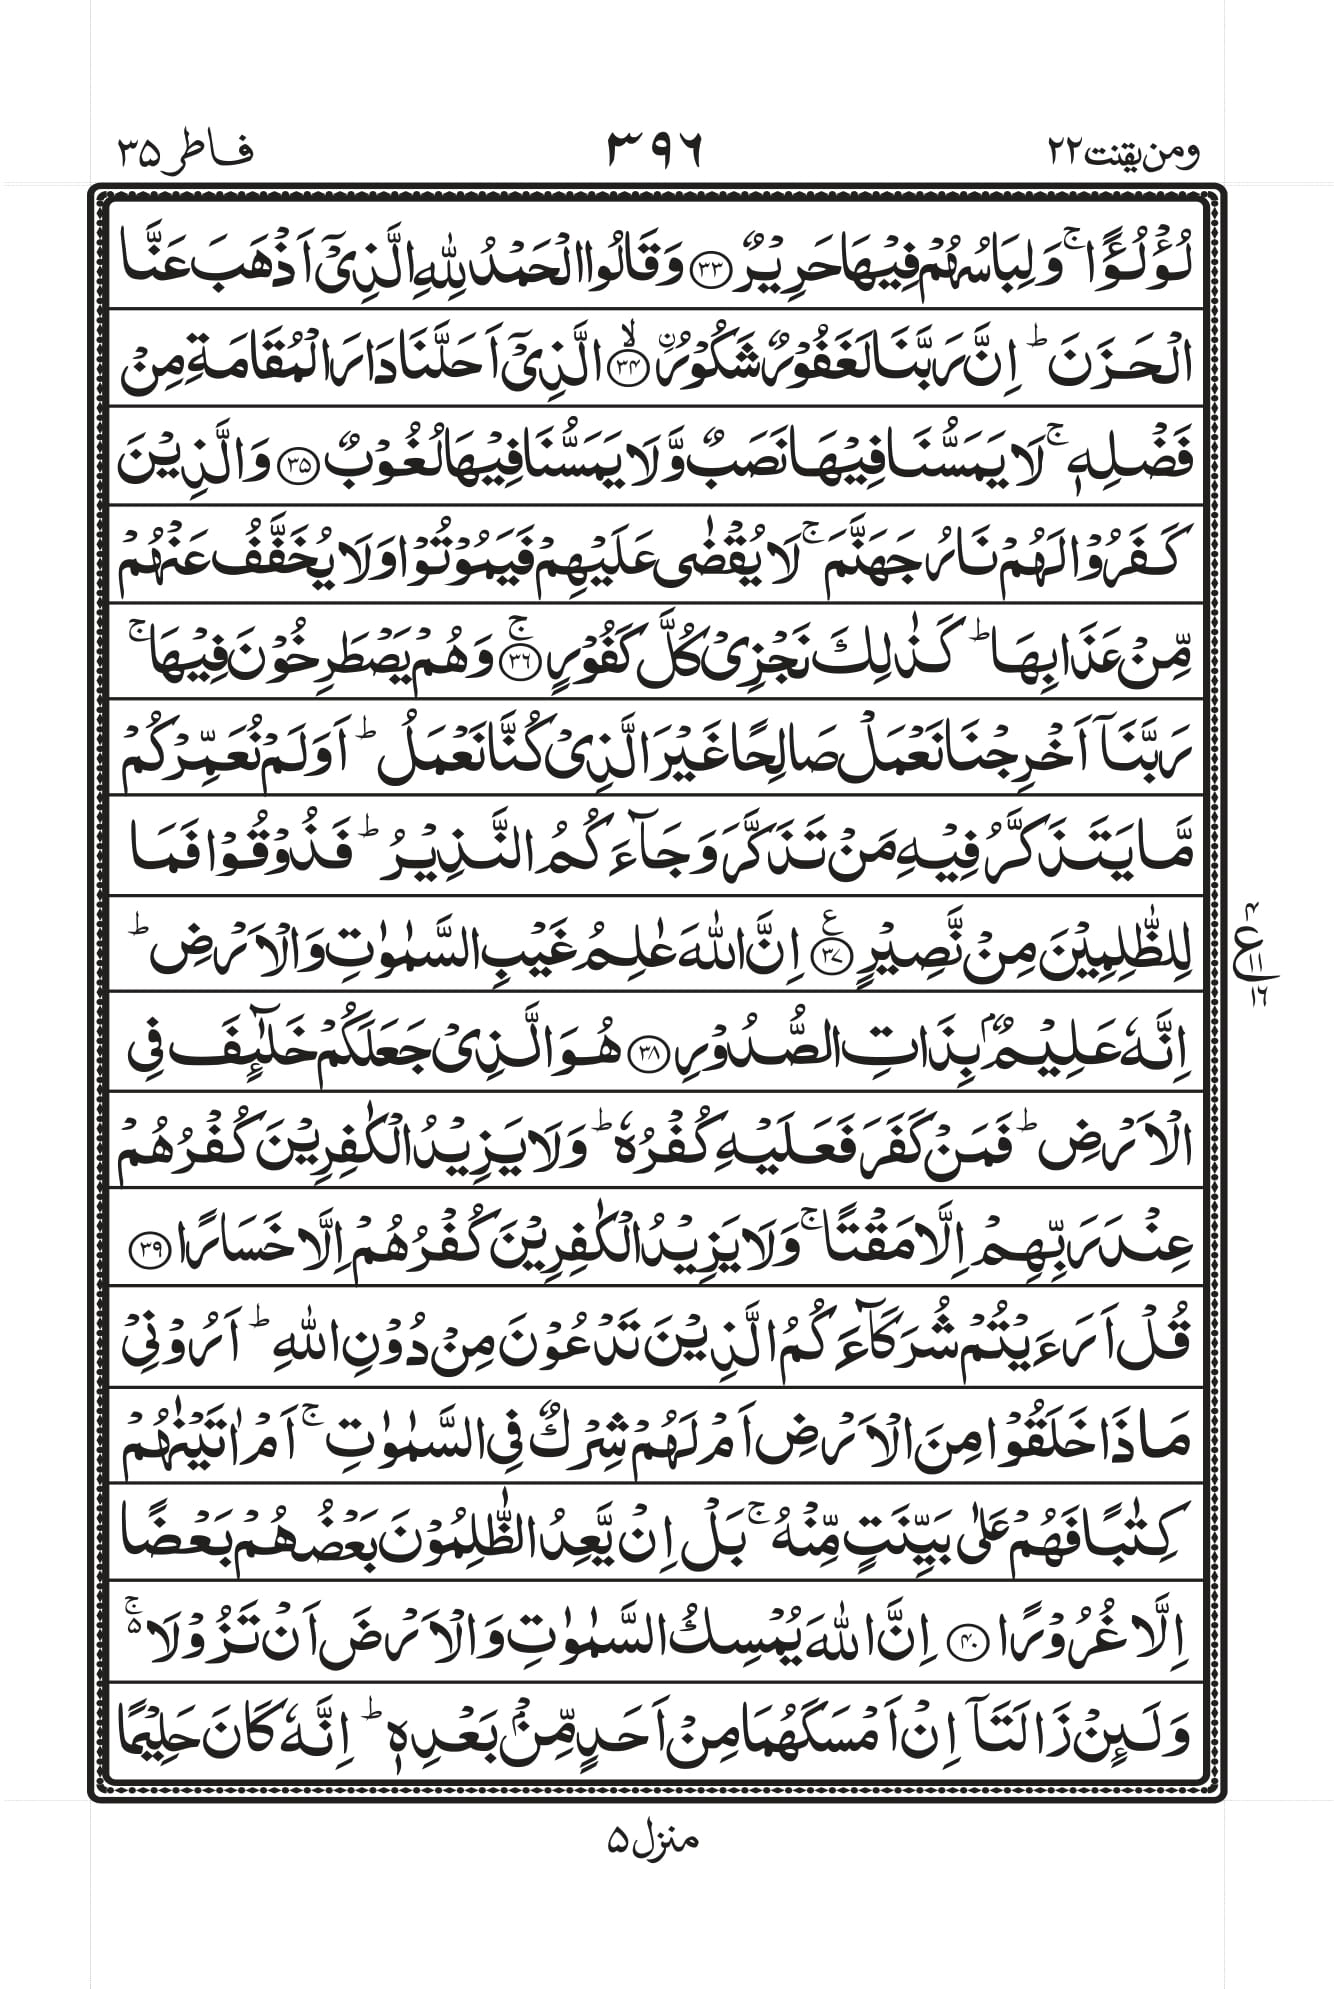 ومن یقنت ۲۲
۳۹۶
فاطر ۳۵
لُؤْلُؤًا ۚ وَلِبَاسُهُمْ فِيْهَا حَرِيْرٌ ﴿۳۳﴾ وَقَالُوا الْحَمْدُ لِلّٰهِ الَّذِىْٓ اَذْهَبَ عَنَّا
الْحَزَنَ ؕ اِنَّ رَبَّنَا لَغَفُوْرٌ شَكُوْرُ ۙ﴿۳۴﴾ الَّذِىْٓ اَحَلَّنَا دَارَ الْمُقَامَةِ مِنْ
فَضْلِهٖ ۚ لَا يَمَسُّنَا فِيْهَا نَصَبٌ وَّلَا يَمَسُّنَا فِيْهَا لُغُوْبٌ ﴿۳۵﴾ وَالَّذِيْنَ
كَفَرُوْا لَهُمْ نَارُ جَهَنَّمَ ۚ لَا يُقْضٰى عَلَيْهِمْ فَيَمُوْتُوْا وَلَا يُخَفَّفُ عَنْهُمْ
مِّنْ عَذَابِهَا ؕ كَذٰلِكَ نَجْزِىْ كُلَّ كَفُوْرٍ ۚ﴿۳۶﴾ وَهُمْ يَصْطَرِخُوْنَ فِيْهَا ۚ
رَبَّنَاۤ اَخْرِجْنَا نَعْمَلْ صَالِحًا غَيْرَ الَّذِىْ كُنَّا نَعْمَلُ ؕ اَوَلَمْ نُعَمِّرْكُمْ
مَّا يَتَذَكَّرُ فِيْهِ مَنْ تَذَكَّرَ وَجَآءَكُمُ النَّذِيْرُ ؕ فَذُوْقُوْا فَمَا
لِلظّٰلِمِيْنَ مِنْ نَّصِيْرٍ ﴿۳۷﴾ ع اِنَّ اللّٰهَ عٰلِمُ غَيْبِ السَّمٰوٰتِ وَالْاَرْضِ ؕ
۴
ع
۱۱
۱۶
اِنَّهٗ عَلِيْمٌۢ بِذَاتِ الصُّدُوْرِ ﴿۳۸﴾ هُوَ الَّذِىْ جَعَلَكُمْ خَلٰٓئِفَ فِى
الْاَرْضِ ؕ فَمَنْ كَفَرَ فَعَلَيْهِ كُفْرُهٗ ؕ وَلَا يَزِيْدُ الْكٰفِرِيْنَ كُفْرُهُمْ
عِنْدَ رَبِّهِمْ اِلَّا مَقْتًا ۚ وَلَا يَزِيْدُ الْكٰفِرِيْنَ كُفْرُهُمْ اِلَّا خَسَارًا ﴿۳۹﴾
قُلْ اَرَءَيْتُمْ شُرَكَآءَكُمُ الَّذِيْنَ تَدْعُوْنَ مِنْ دُوْنِ اللّٰهِ ؕ اَرُوْنِىْ
مَاذَا خَلَقُوْا مِنَ الْاَرْضِ اَمْ لَهُمْ شِرْكٌ فِى السَّمٰوٰتِ ۚ اَمْ اٰتَيْنٰهُمْ
كِتٰبًا فَهُمْ عَلٰى بَيِّنَتٍ مِّنْهُ ۚ بَلْ اِنْ يَّعِدُ الظّٰلِمُوْنَ بَعْضُهُمْ بَعْضًا
اِلَّا غُرُوْرًا ﴿۴۰﴾ اِنَّ اللّٰهَ يُمْسِكُ السَّمٰوٰتِ وَالْاَرْضَ اَنْ تَزُوْلَا ۚ۵
وَلَئِنْ زَالَتَاۤ اِنْ اَمْسَكَهُمَا مِنْ اَحَدٍ مِّنْۢ بَعْدِهٖ ؕ اِنَّهٗ كَانَ حَلِيْمًا
منزل ۵